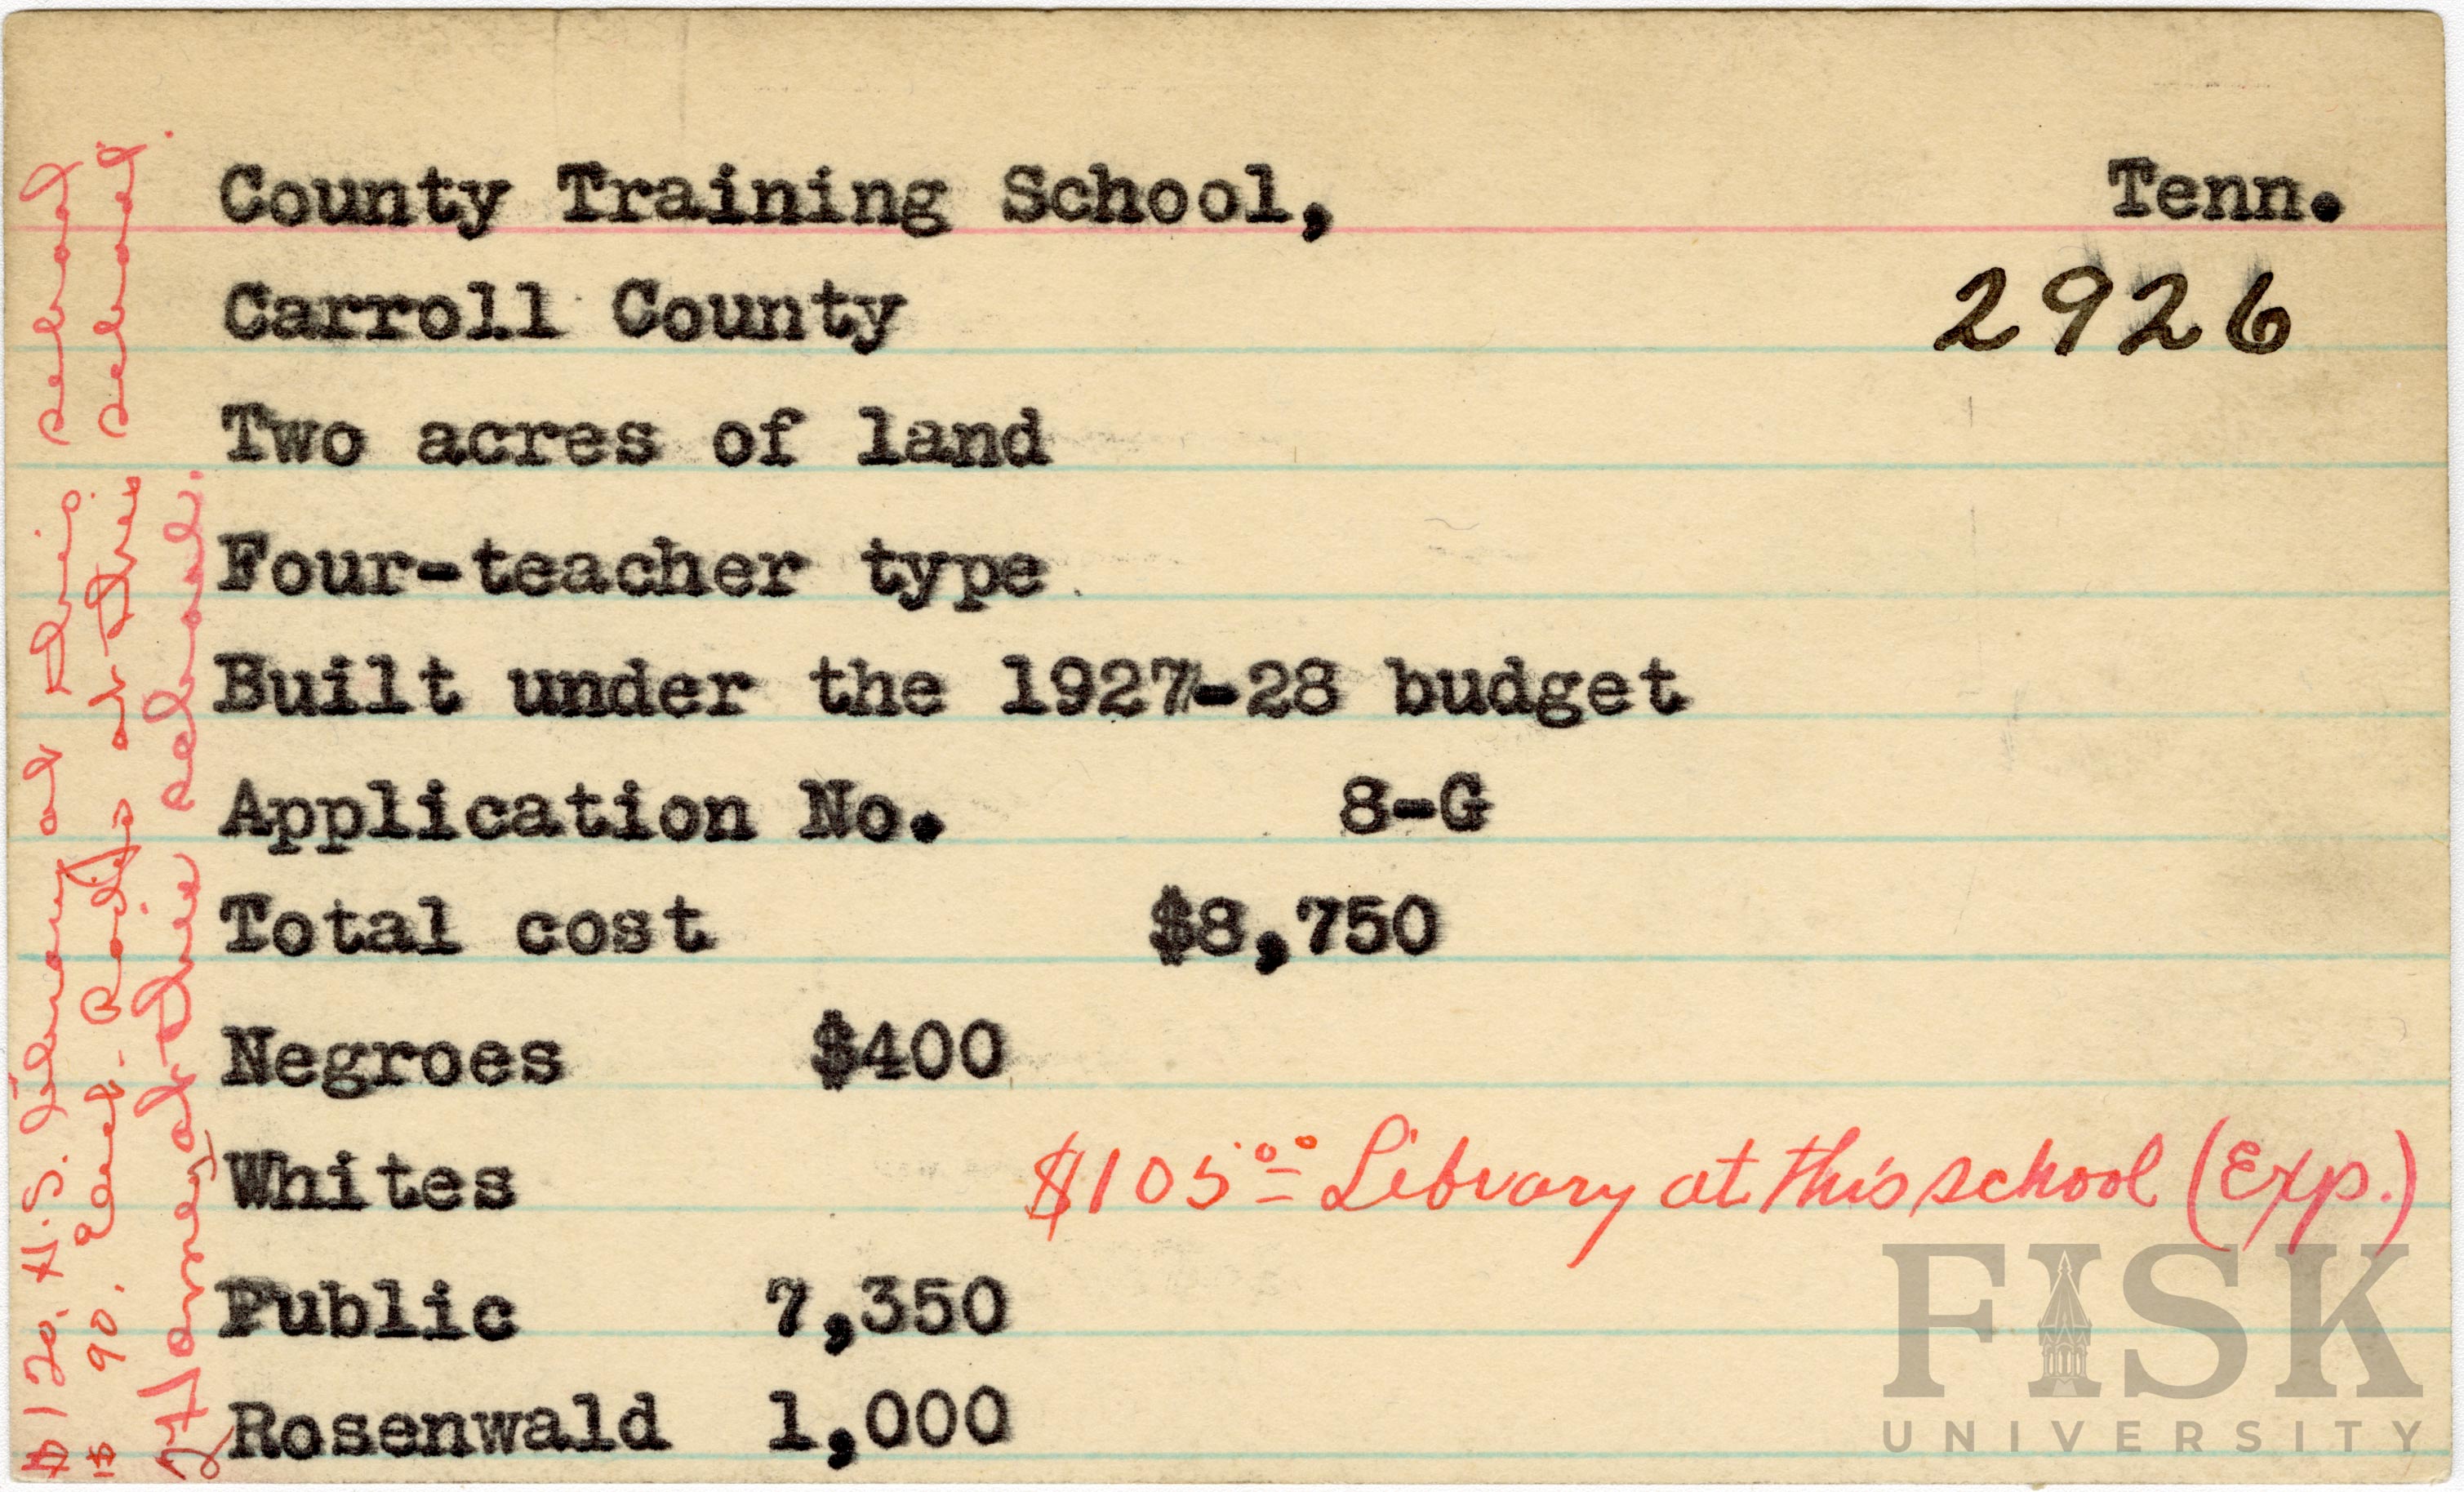 County Training School, Tenn.
Carroll County 2926
Two acres of land
Four-teacher type
Built under the 1927-28 budget
Application No. 8-G
Total cost $8,750
Negroes $400
Whites
$105.00 Library at this school (Exp.)
Public 7,350
Rosenwald 1,000
$120. H.S. Library at this school
$90. at this school.
at this school.
FISK
UNIVERSITY